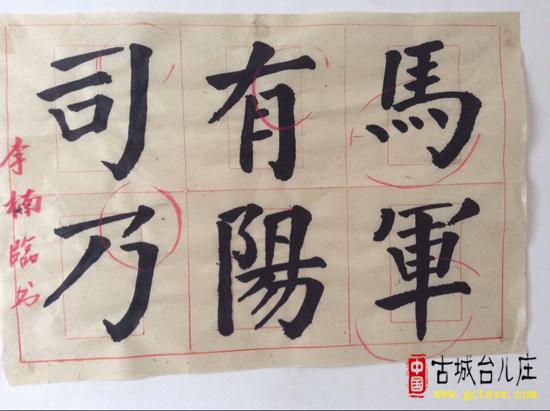 馬軍
有陽
司乃
李楠臨书
中国
古城台儿庄
www.gctezw.com